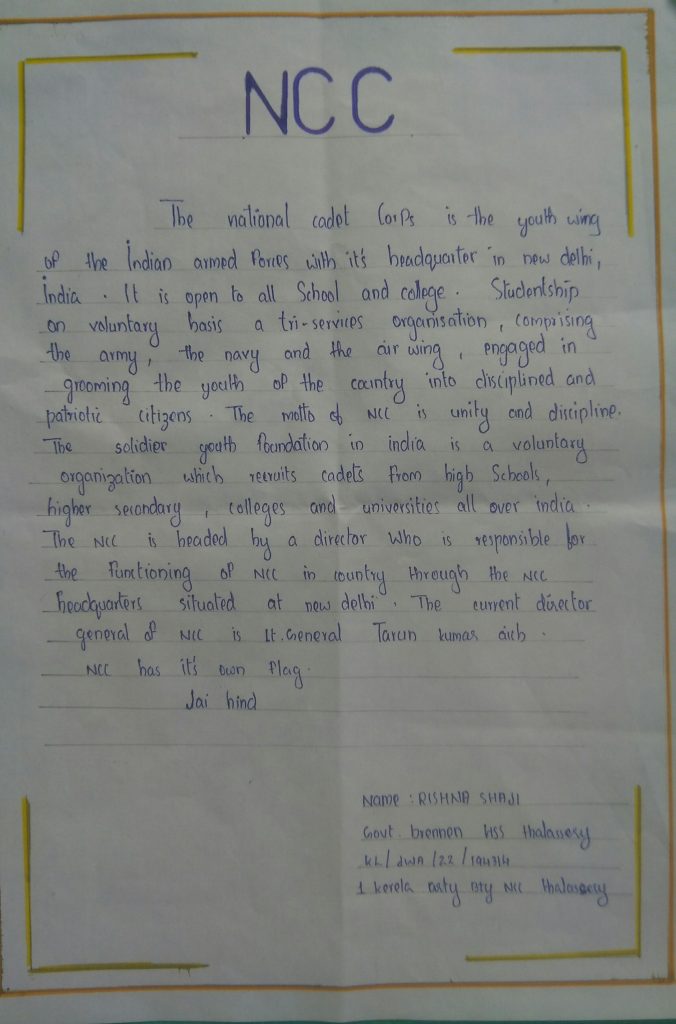 NCC
The national cadet Corps is the youth wing
of the Indian armed forces with it's headquarter in new delhi,
India . It is open to all School and college . Studentship
on voluntary basis a tri-services organisation , comprising
the army , the navy and the air wing , engaged in
grooming the youth of the country into disciplined and
patriotic citizens . The motto of NCC is unity and discipline.
The solidier youth foundation in india is a voluntary
organization which recruits cadets from high Schools,
higher secondary , colleges and universities all over india .
The NCC is headed by a director who is responsible for
the functioning of NCC in country through the NCC
headquarters situated at new delhi . The current director
general of NCC is lt. General Tarun kumar aich .
NCC has it's own flag .
Jai hind
Name : RISHNA SHAJI
Govt. brennen HSS thalassery
KL / JWA / 22 / 194314
1 kerela arty Bty NCC thalassery